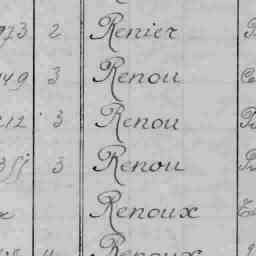 973 2 Renier
149 3 Renou
212 3 Renou
3 Renou
Renoux
Renoux